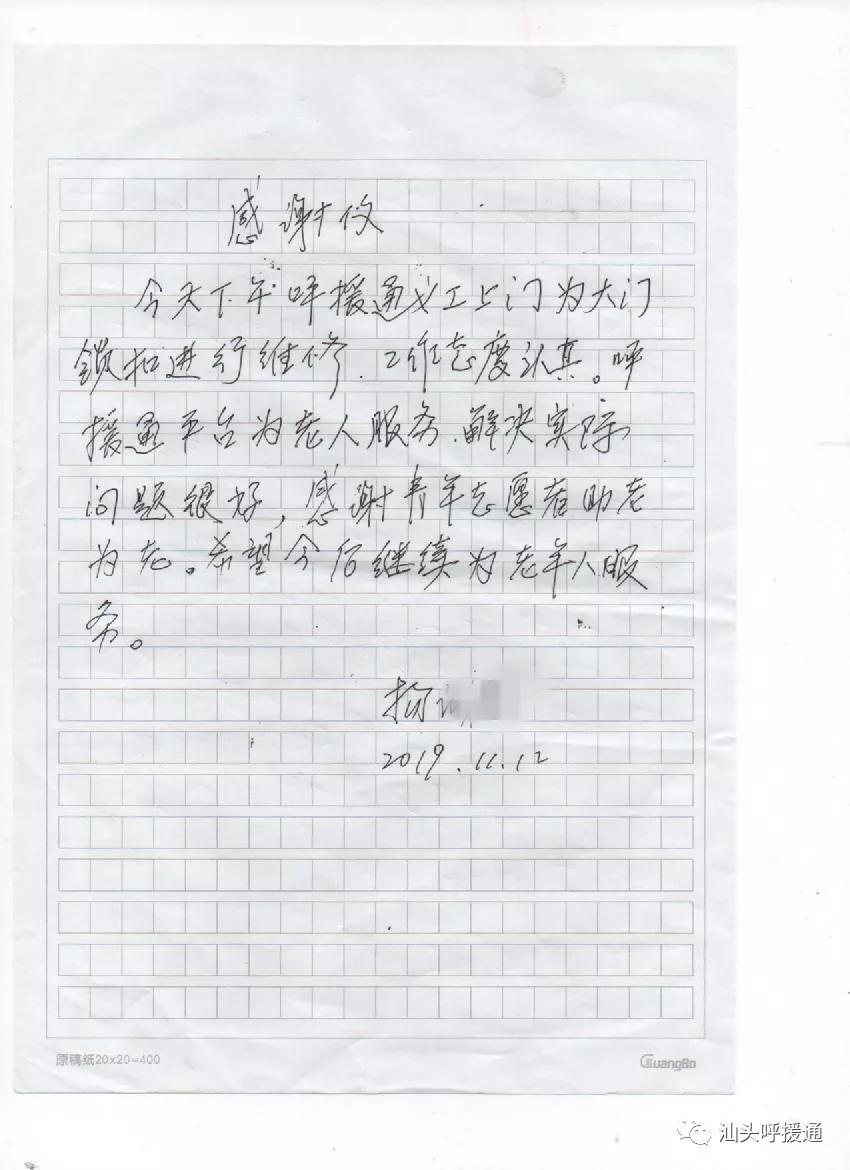 感谢仪
今天下午呼援通义工上门为大门
锁扣进行维修、工作态度认真。呼
援通平台为老人服务、解决实际
问题很好，感谢青年志愿者助老
为老。希望今后继续为老年人服
务。
2019.11.12
原稿纸20x20=400
GuangBo
汕头呼援通